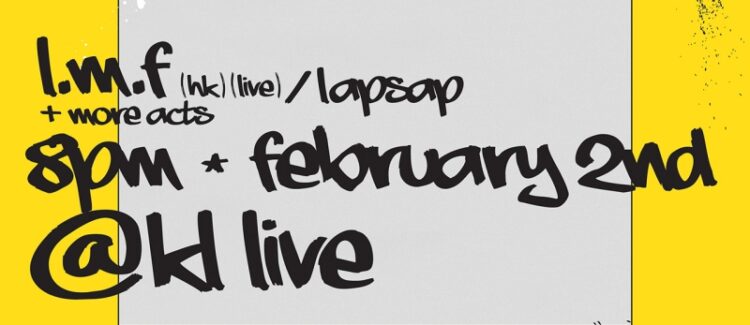 l.m.f (hk) (live) / lapsap
+ more acts
8pm * february 2nd
@kl live